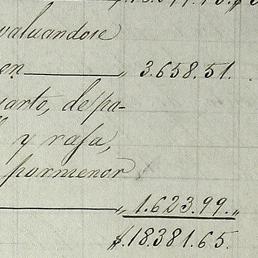 valuandose
en ——— „ 3.658.51.
uarto, de pa-
y rasa,
pormenor
——— „ 1.623.99. „
$.18.381.65.